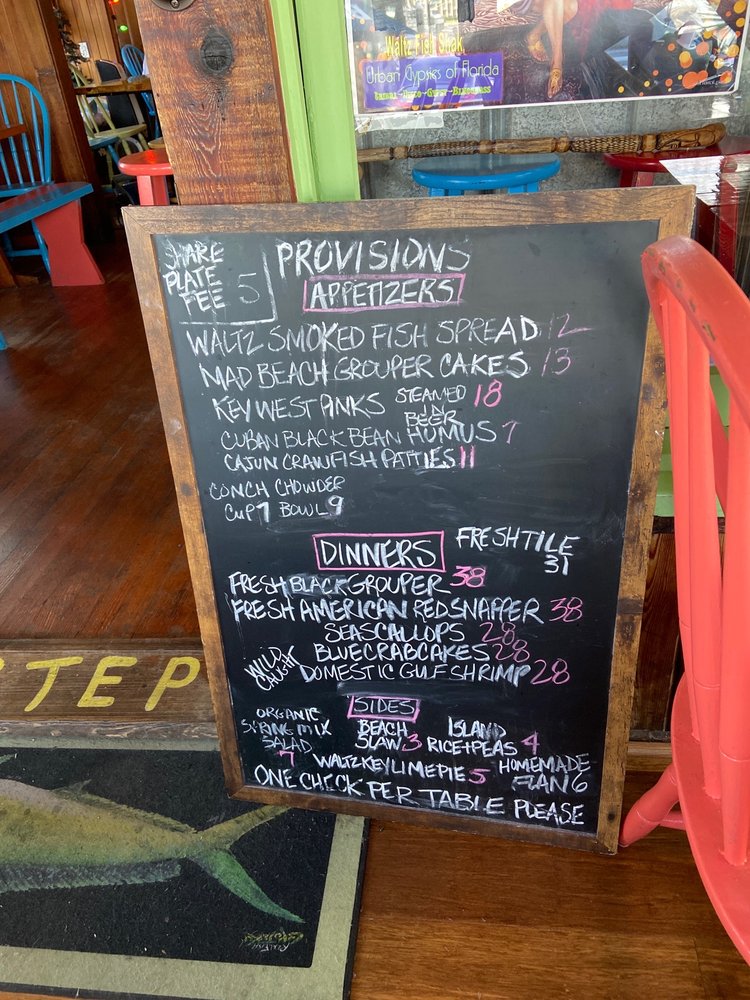 Waltz Fish Shak
Urban Gypsies of Florida
SHARE
PLATE
FEE 5
PROVISIONS
APPETIZERS
WALTZ SMOKED FISH SPREAD 12
MAD BEACH GROUPER CAKES 13
KEY WEST PINKS STEAMED IN BEER 18
CUBAN BLACK BEAN HUMUS 7
CAJUN CRAWFISH PATTIES 11
CONCH CHOWDER
CUP 7 BOWL 9
DINNERS
FRESH TILE
31
FRESH BLACK GROUPER 38
FRESH AMERICAN RED SNAPPER 38
SEA SCALLOPS 28
BLUE CRAB CAKES 28
WILD
CAUGHT
DOMESTIC GULF SHRIMP 28
SIDES
ORGANIC
SPRING MIX
SALAD
7
BEACH
SLAW 3
ISLAND
RICE + PEAS 4
WALTZ KEY LIME PIE 5
HOMEMADE
FLAN 6
ONE CHECK PER TABLE PLEASE
TEP